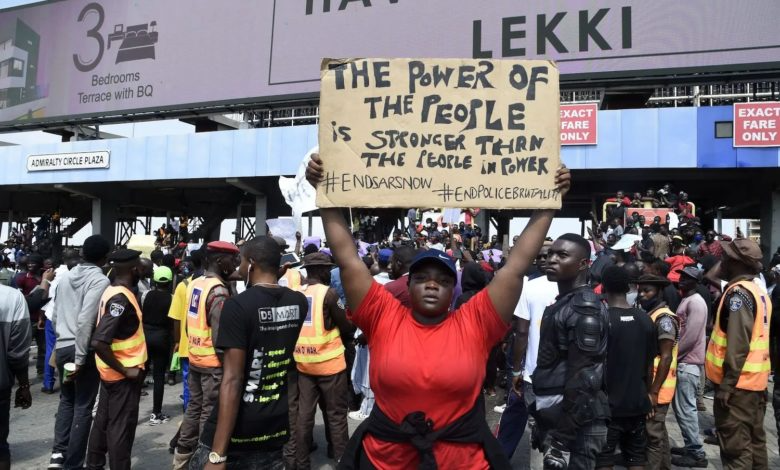 LEKKI
3
Bedrooms
Terrace with BQ
ADMIRALTY CIRCLE PLAZA
EXACT
FARE
ONLY
EXACT
FARE
ONLY
THE POWER OF
THE PEOPLE
IS STRONGER THAN
THE PEOPLE IN POWER
#ENDSARSNOW #ENDPOLICEBRUTALITY
DS MART
SMART